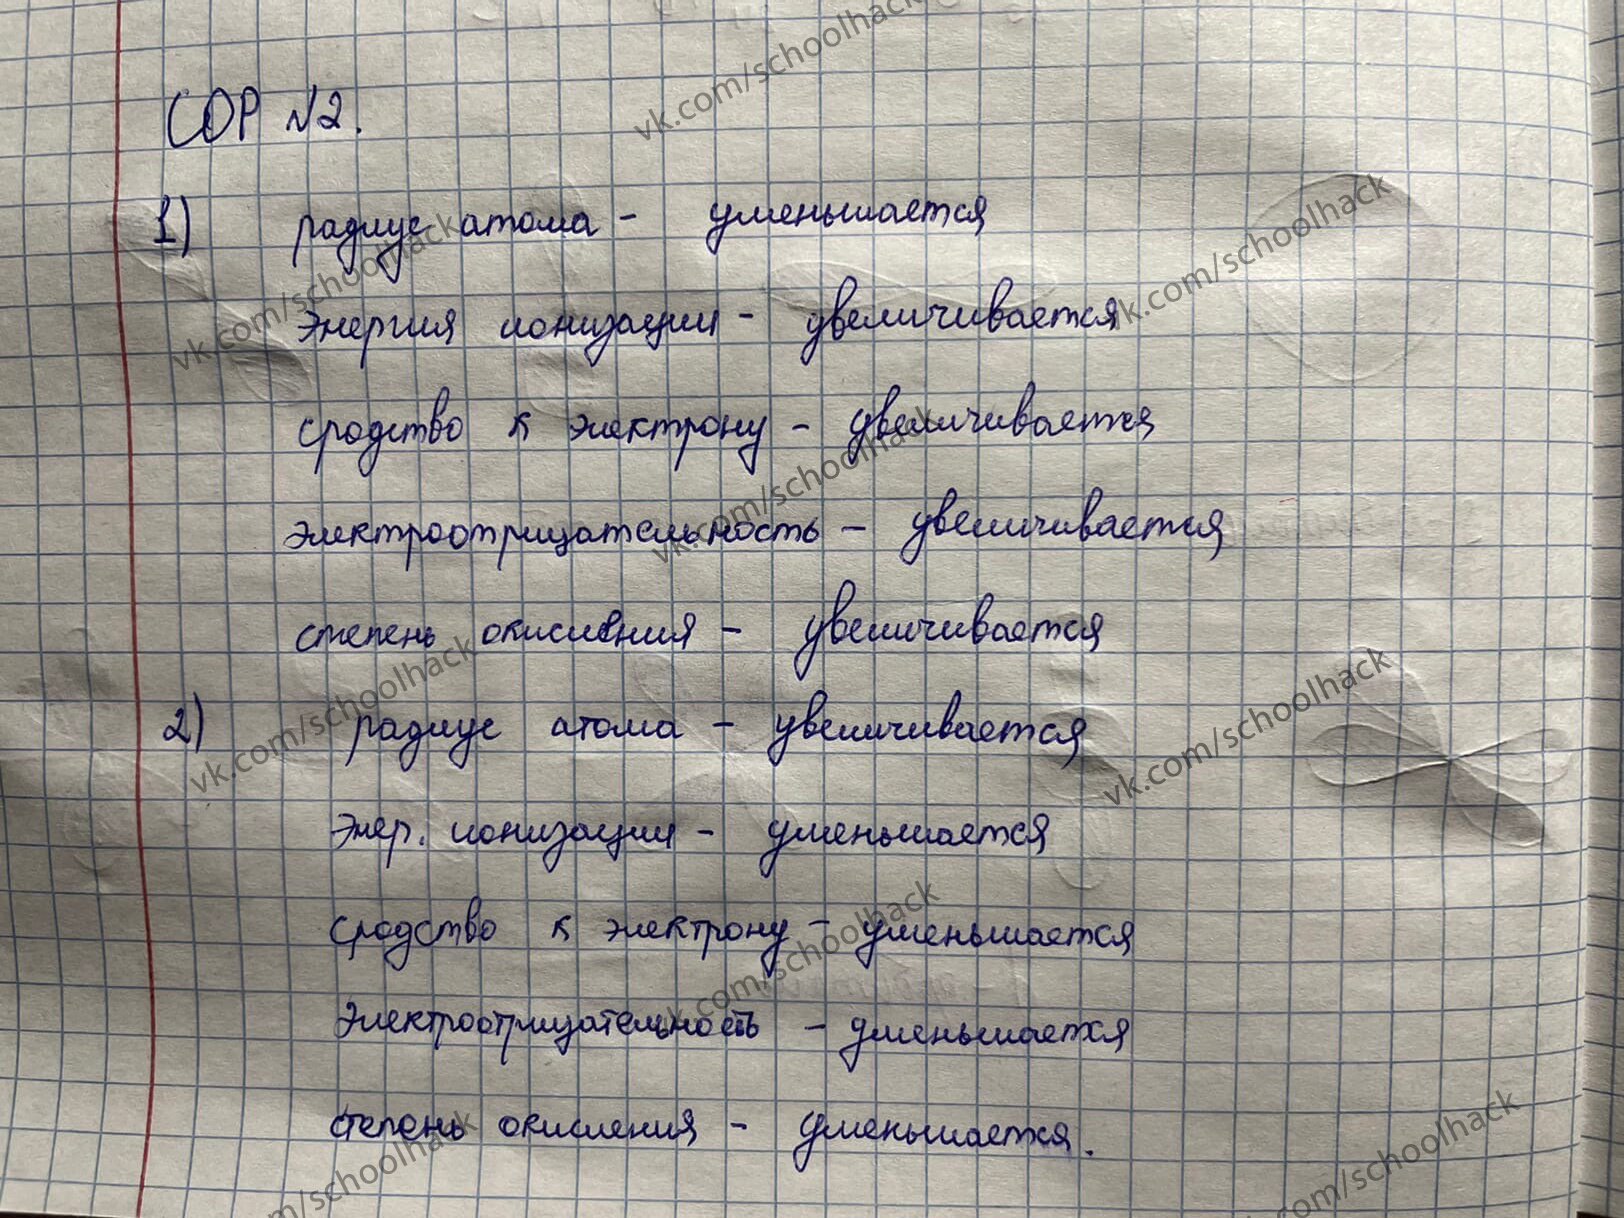 СОР №2.
1) радиус атома - уменьшается
энергия ионизации - увеличивается
сродство к электрону - увеличивается
электроотрицательность - увеличивается
степень окисления - увеличивается
2) радиус атома - увеличивается
энер. ионизации - уменьшается
сродство к электрону - уменьшается
электроотрицательность - уменьшается
степень окисления - уменьшается.
vk.com/schoolhack
vk.com/schoolhack
vk.com/schoolhack
vk.com/schoolhack
vk.com/schoolhack
vk.com/schoolhack
vk.com/schoolhack
m/schoolhack
om/schoolhack